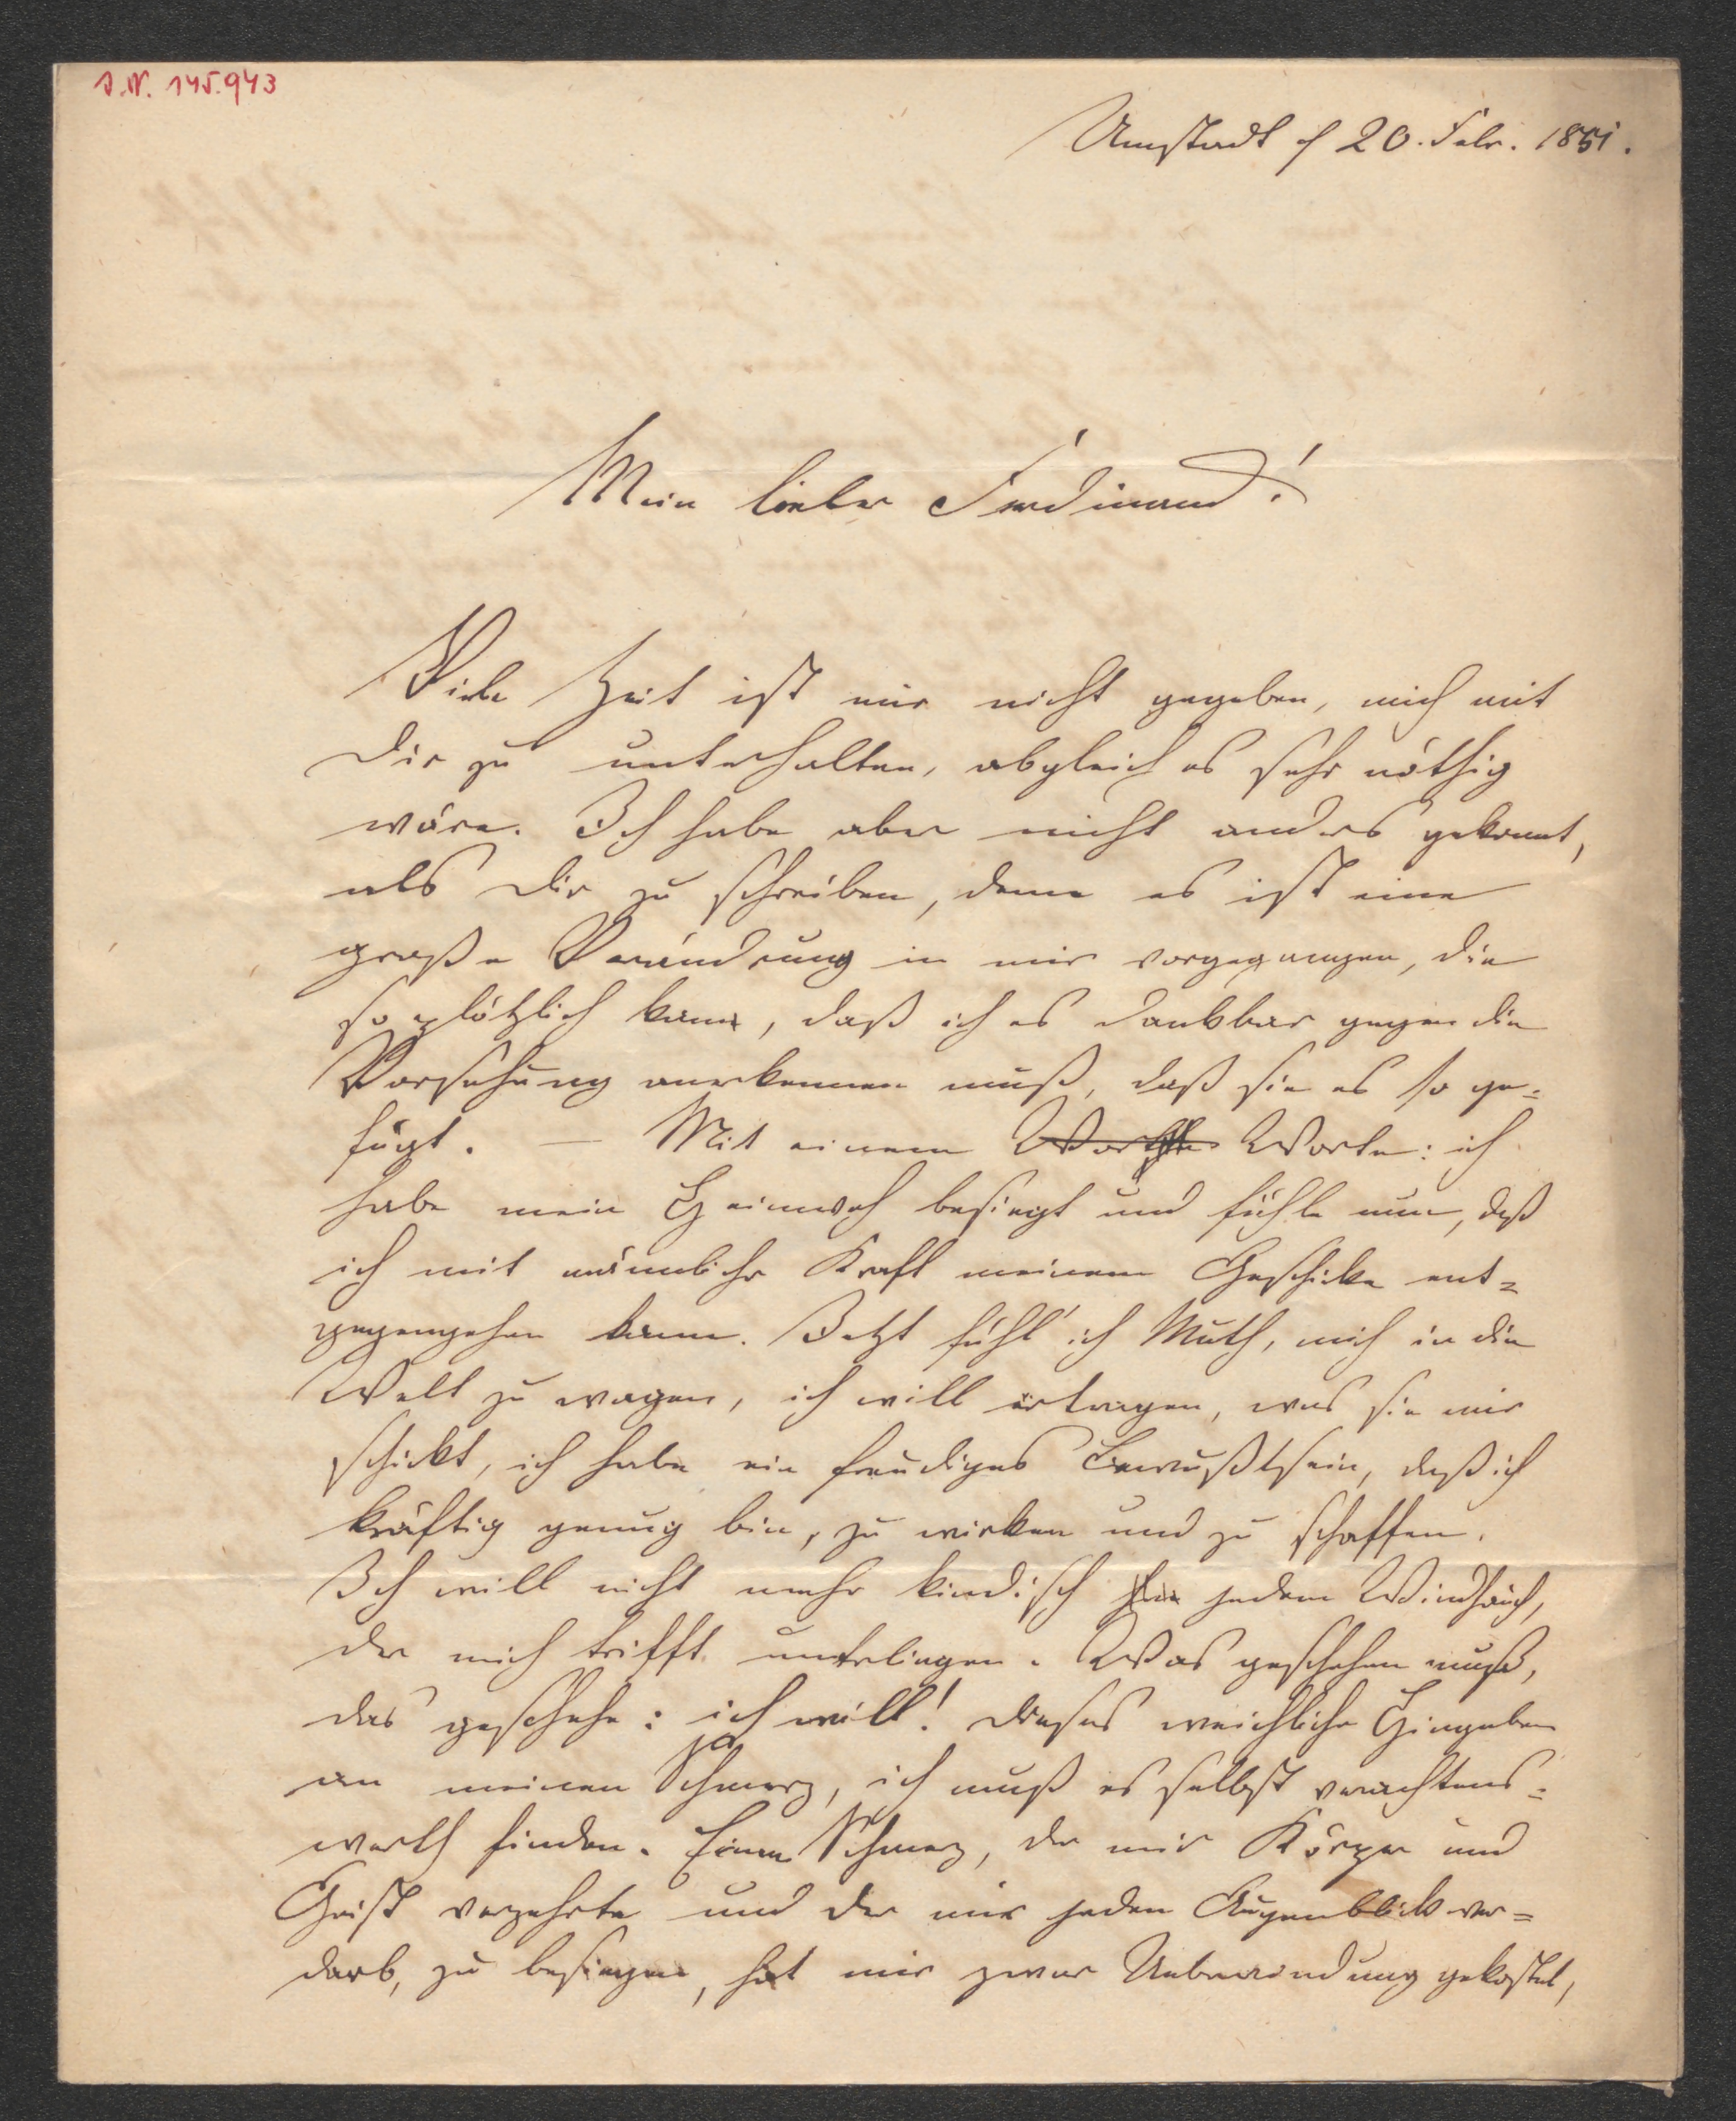 I.N. 145.943
Umstadt 20. Febr. 1851.
Mein lieber Ferdinand!
Viele Zeit ist mir nicht gegeben, mich mit
Dir zu unterhalten, obgleich es sehr nöthig
wäre. Ich habe aber nicht anders gekonnt,
als Dir zu schreiben, denn es ist eine
große Verändrung in mir vorgegangen, die
so plötzlich kam, daß ich es dankbar gegen die
Vorsehung anerkennen muß, daß sie es so ge=
fügt. — Mit einem Worte: ich
habe mein Heimweh besiegt und fühle nun, daß
ich mit männlicher Kraft meinem Geschicke ent=
gegengehen kann. Jetzt fühl' ich Muth, mich in die
Welt zu wagen, ich will ertragen, was sie mir
schickt, ich habe ein freudiges Bewußtsein, daß ich
kräftig genug bin, zu wirken und zu schaffen.
Ich will nicht mehr kindisch jedem Windhauch,
der mich trifft unterliegen. Was geschehen muß,
das geschehe: ich will! Dieses weichliche Hingeben
an meinen Schmerz, ja ich muß es selbst verachtens=
werth finden. Einen Schmerz, der mir Körper und
Geist verzehrte und der mir jeden Augenblick ver=
darb, zu besiegen, hat mir zwar Ueberwindung gekostet,